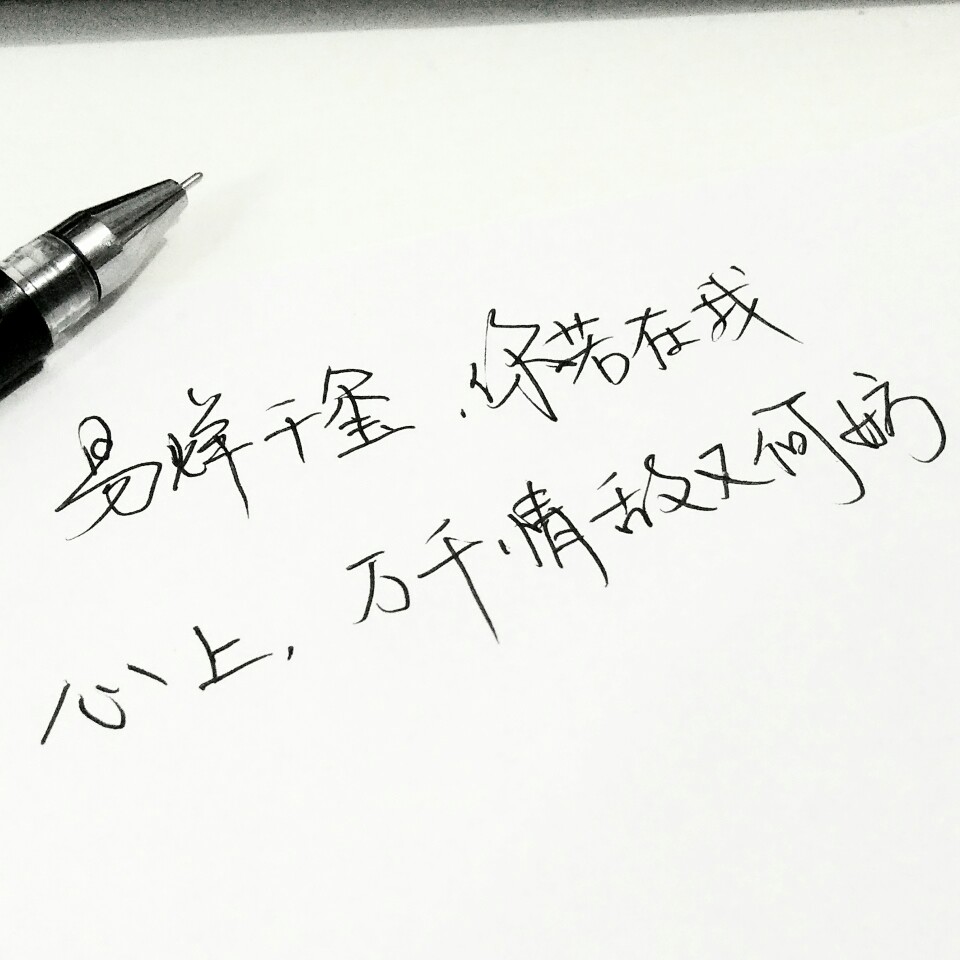 易烊千玺.你若在我
心上,万千情敌又何妨